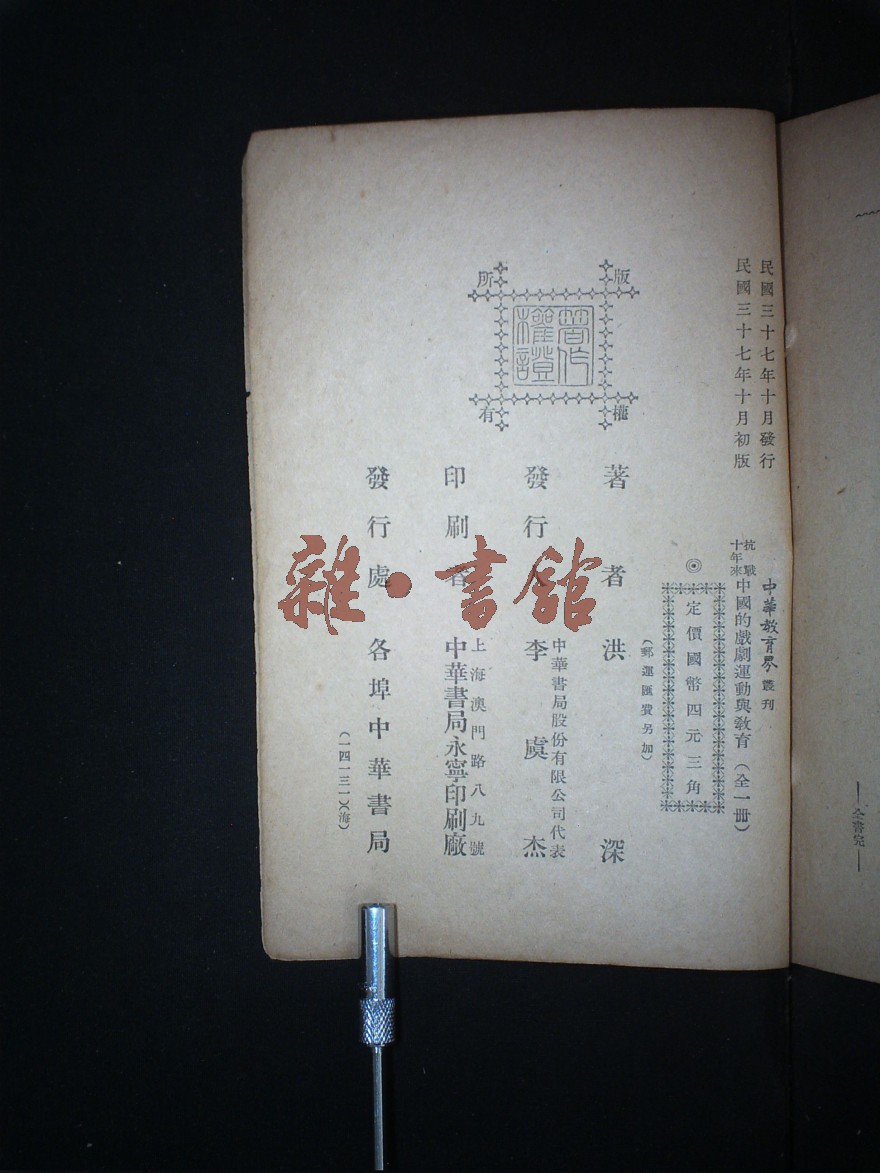 民國三十七年十月發行
民國三十七年十月初版
中華教育界叢刊
抗戰十年來中國的戲劇運動與教育(全一冊)
◎定價國幣四元三角
(郵運匯費另加)
版權所有
著作權證
著者 洪深
發行人 中華書局股份有限公司代表 李虞杰
印刷者 上海澳門路八九號 中華書局永寧印刷廠
發行處 各埠中華書局
(一四一三一)(海)
雜·書館
—全書完—